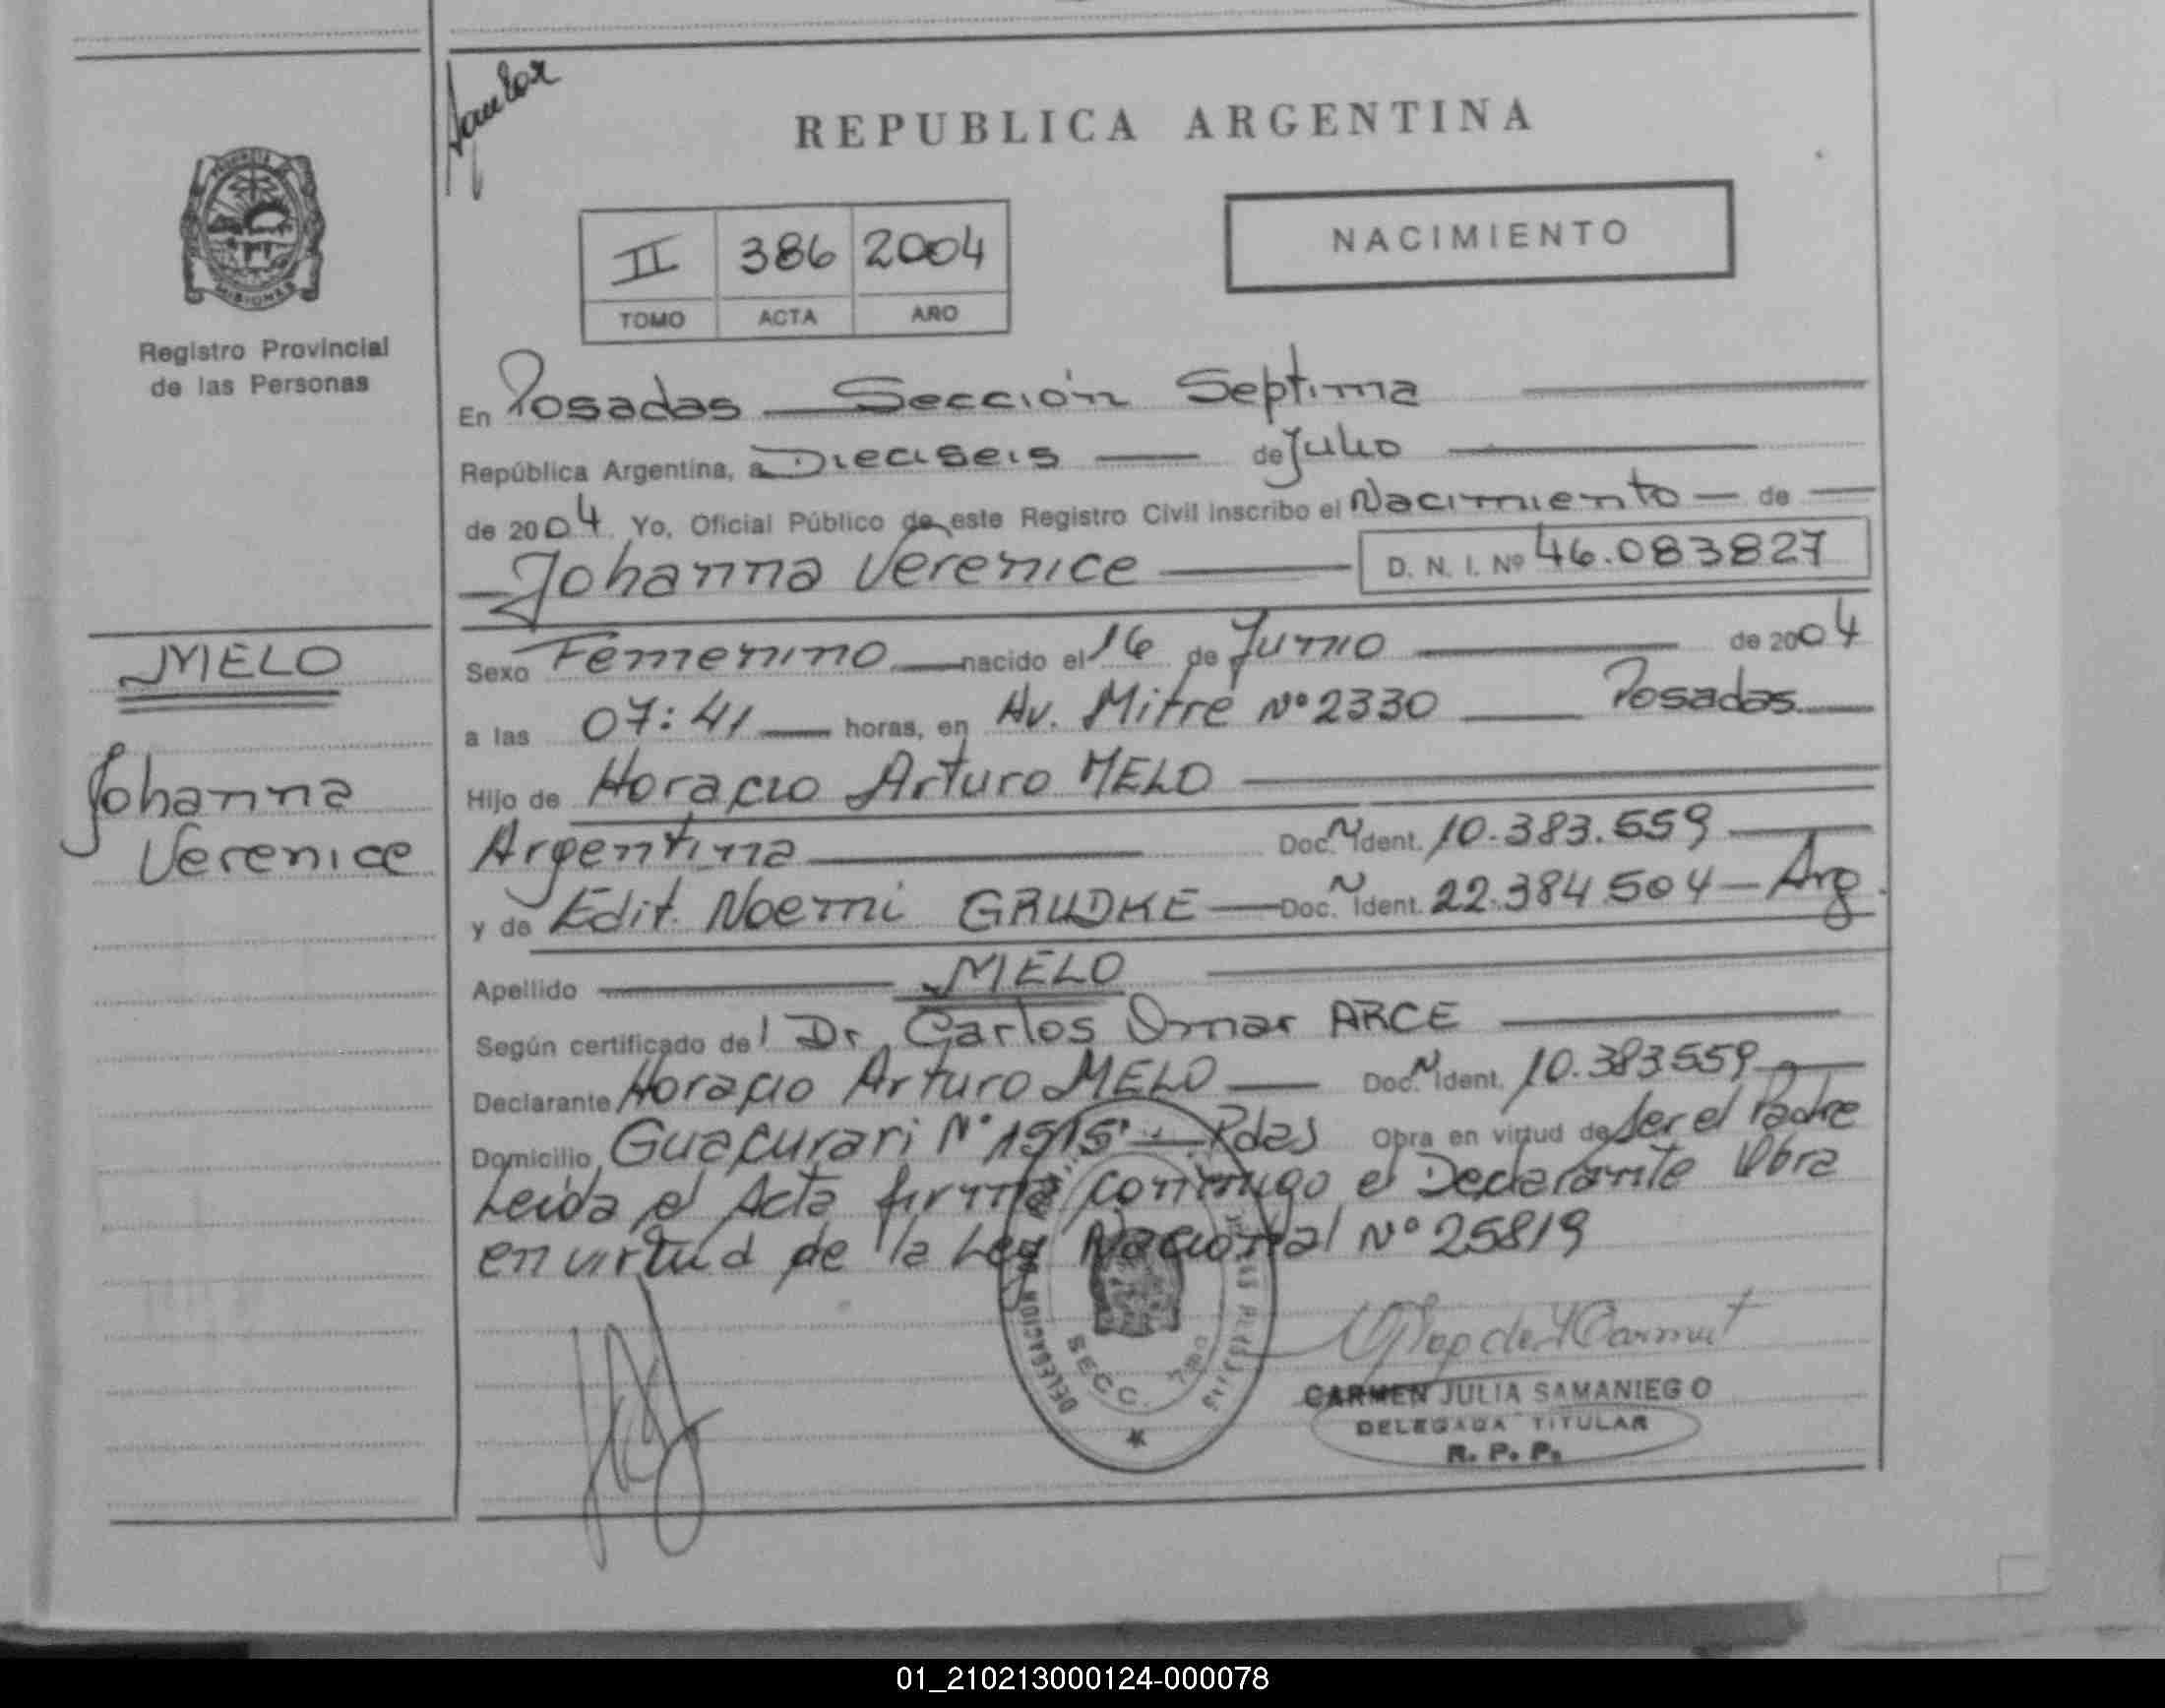 REPUBLICA ARGENTINA
MISIONES
Registro Provincial
de las Personas
II 386 2004
TOMO ACTA AÑO
NACIMIENTO
En Posadas Sección Septima
República Argentina, a Dieciseis de Julio
de 2004 Yo, Oficial Público de este Registro Civil inscribo el Nacimiento de
Johanna Verenice D. N. I. Nº 46.083827
MELO
Johanna
Verenice
Sexo Femenino nacido el 16 de Junio de 2004
a las 07:41 horas, en Av. Mitre Nº 2330 Posadas
Hijo de Horacio Arturo MELO
Argentina Doc. N Ident. 10.383.559
y de Edit Noemi GRUDKE Doc. N Ident. 22.384.504 Arg.
Apellido MELO
Según certificado del Dr Carlos Omar ARCE
Declarante Horacio Arturo MELO Doc. N Ident. 10.383559
Domicilio Guacurari Nº 1515 Pdas Obra en virtud de Ser el Padre
Leida el Acta firma conmigo el Declarante Obra
en virtud de la Ley Nacional Nº 25819
DELEGACION
SECC. 7ma
CARMEN JULIA SAMANIEGO
DELEGADA TITULAR
R. P. P.
01_210213000124-000078